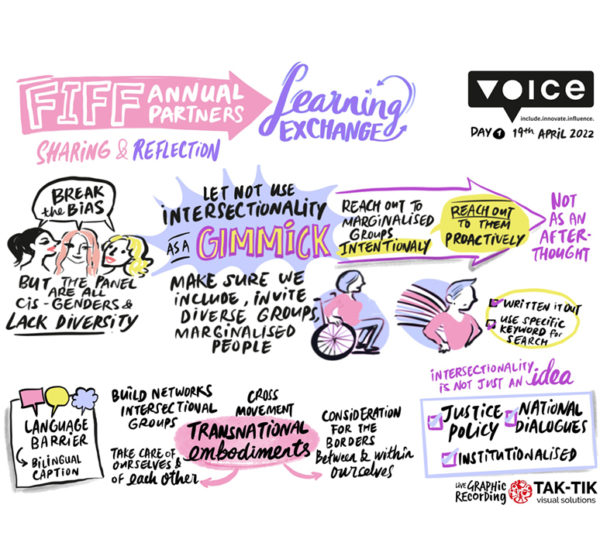 FIFF ANNUAL
PARTNERS
Learning
EXCHANGE
SHARING & REFLECTION
VOICE
include.innovate.influence.
DAY 1 19th APRIL 2022
BREAK
the BIAS
BUT THE PANEL
ARE ALL
CIS-GENDERS &
LACK DIVERSITY
LET NOT USE
INTERSECTIONALITY
AS A GIMMICK
MAKE SURE WE
INCLUDE, INVITE
DIVERSE GROUPS,
MARGINALISED
PEOPLE
REACH OUT TO
MARGINALISED
GROUPS
INTENTIONALY
REACH OUT
TO THEM
PROACTIVELY
NOT
AS AN
AFTER-
THOUGHT
WRITTEN IT OUT
USE SPECIFIC
KEYWORD for
SEARCH
LANGUAGE
BARRIER
BILINGUAL
CAPTION
BUILD NETWORKS
INTERSECTIONAL
GROUPS
CROSS
MOVEMENT
TRANSNATIONAL
embodiments
TAKE CARE OF
OURSELVES &
OF each other
CONSIDERATION
FOR THE
BORDERS
Between & within
ourselves
INTERSECTIONALITY
IS NOT JUST AN idea
JUSTICE
POLICY
NATIONAL
DIALOGUES
INSTITUTIONALISED
LIVE GRAPHIC
RECORDING
TAK-TIK
visual solutions